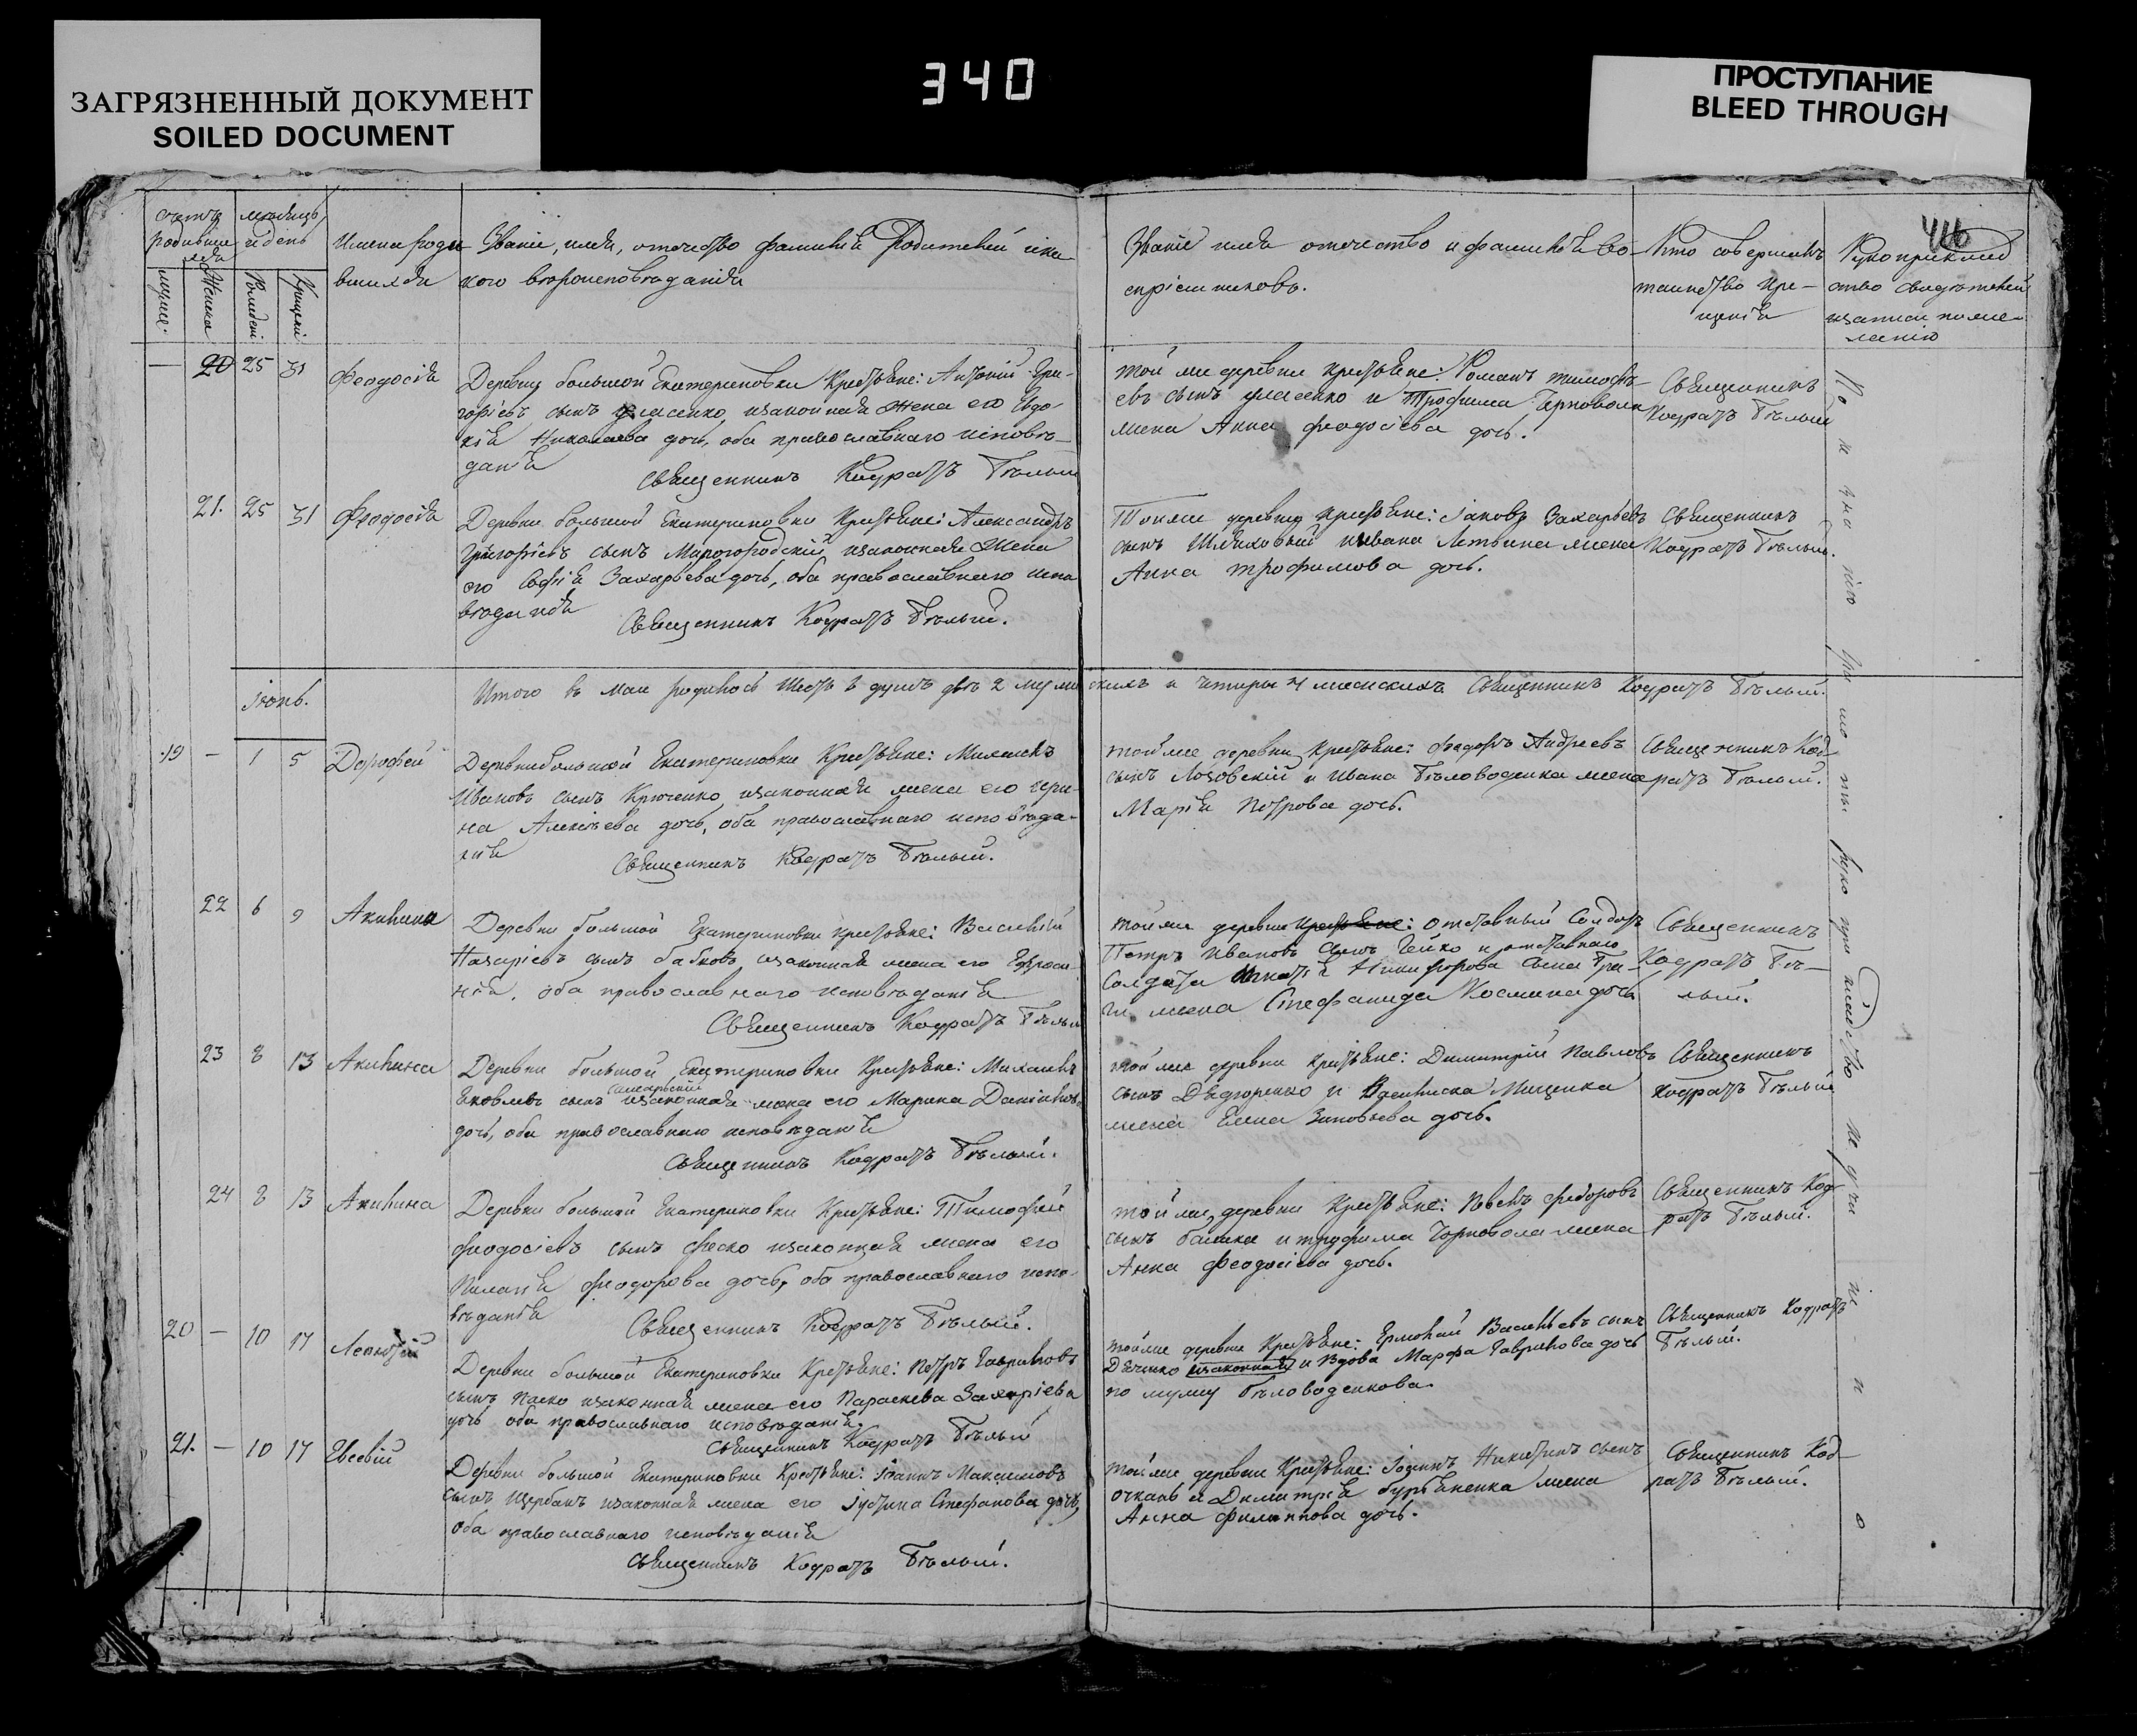 340
ЗАГРЯЗНЕННЫЙ ДОКУМЕНТ
SOILED DOCUMENT
ПРОСТУПАНИЕ
BLEED THROUGH
счетъ родившихся
мужеск. женска
месяцъ и день
рожденiя крещенiя
Имена роди
вшихся
Званiе, имя, отечество фамилiя Родителей и ка
кого вѣроисповѣданiя
Званiе имя отечество и фамилiя во
спрiемниковъ.
Кто совершалъ
таинство кре-
щенiя
Рукоприклад
ство свидѣтелей
записи по же-
ланiю
— 20 25 31 Феодосiя
Деревни большой Екатериновки Крестьяне: Антонiй Гри-
горiевъ сынъ изаконная жена его Евдо-
кiя Николаева дочь, оба православнаго исповѣ-
данiя
Священникъ Кодратъ Бѣлый
той же деревни крестьяне: Романъ тимофѣ-
евъ сынъ и Трофима Чорновола
жена Анна феодосiева дочь.
Священникъ
Кодратъ Бѣлый
21. 25 31 Феодосiя
Деревни большой Екатериновки Крестьяне: Александръ
Григорiевъ сынъ Миргородскiй изаконная Жена
его Софiя Захарьева дочь, оба православнаго испо
вѣданiя
Священникъ Кодратъ Бѣлый.
Тойже деревни крестьяне: Iаковъ Захарьевъ
сынъ иивана Литвина жена
Анна трофимова дочь.
Священникъ
Кодратъ Бѣлый.
Итого въ маи родилось шесть 6 душъ двѣ 2 мужескихъ и четыри 4 женскихъ Священникъ Кодратъ Бѣлый.
Iюнь.
19 — 1 5 Дорофей
Деревнибольшой Екатериновки Крестьяне: Михаилъ
Ивановъ сынъ Крюченко изаконная жена его
Алексѣева дочь, оба православнаго исповѣда-
нiя
Священникъ Кодратъ Бѣлый.
тойже деревни крестьяне: Федоръ Андреевъ
сынъ Лозовскiй и Ивана Бѣловоденка жена
Марiя Петрова дочь.
Священникъ Код
ратъ Бѣлый.
22 6 9 Акилина
Деревни большой Екатериновки крестьяне: Василiй
Назарiевъ сынъ бабковъ изаконная жена его Ефроси-
нiя, оба православнаго исповѣданiя
Священникъ Кодратъ Бѣлый
тойже деревни крестьяне: отставный Солдатъ
Петръ Ивановъ сынъ и отставнаго
Солдата Никифорова сына
жена Стефанида Космина дочь
Священникъ
Кодратъ Бѣ-
лый.
23 8 13 Акилина
Деревни большой Екатериновки Крестьяне: Михаилъ
Яковлевъ сынъ изаконная жена его Марина Данiилова
дочь, оба православнаго исповѣданiя
Священникъ Кодратъ Бѣлый.
тойже деревни крестьяне: Димитрiй Павловъ
сынъ и Мищенка
жена Елена Зиновьева дочь.
Священникъ
Кодратъ Бѣлый
24 8 13 Акилина
Деревни большой Екатериновки Крестьяне: Тимофей
Феодосiевъ сынъ феско изаконная жена его
Пилагiя феодорова дочь, оба православнаго испо-
вѣданiя
Священникъ Кодратъ Бѣлый.
тойже деревни крестьяне: федоровъ
сынъ и трофима Чорновола жена
Анна Феодосiева дочь.
Священникъ Код
ратъ Бѣлый.
20 — 10 17 Леонтiй
Деревни большой Екатериновки Крестьяне: Петръ Гавриловъ
сынъ Паско изаконная жена его Параскева Захарiева
дочь оба православнаго исповѣданiя.
Священникъ Кодратъ Бѣлый
тойже деревни Крестьяне: Ермолай Васильевъ сынъ
Дяченко изаконная и Вдова Марфа Гаврилова дочь
по мужу бѣловоденкова.
Священникъ Кодратъ
Бѣлый.
21. — 10 17 Евсевiй
Деревни большой Екатериновки Крестьяне: Iоаннъ Максимовъ
сынъ Щербакъ изаконная жена его Iустина Стефанова дочь,
оба православнаго исповѣданiя
Священникъ Кодратъ Бѣлый.
тойже деревни Крестьяне: Iоаннъ Никитинъ сынъ
и Димитрiя жена
Анна филиппова дочь.
Священникъ Код-
ратъ Бѣлый.